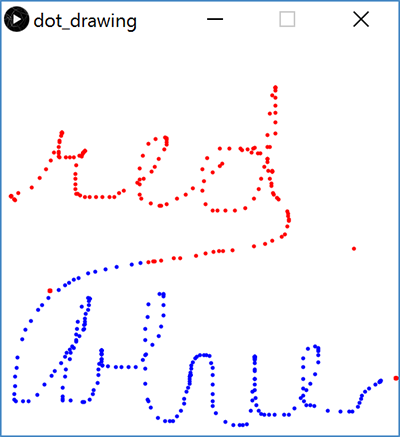 dot_drawing
red
blue